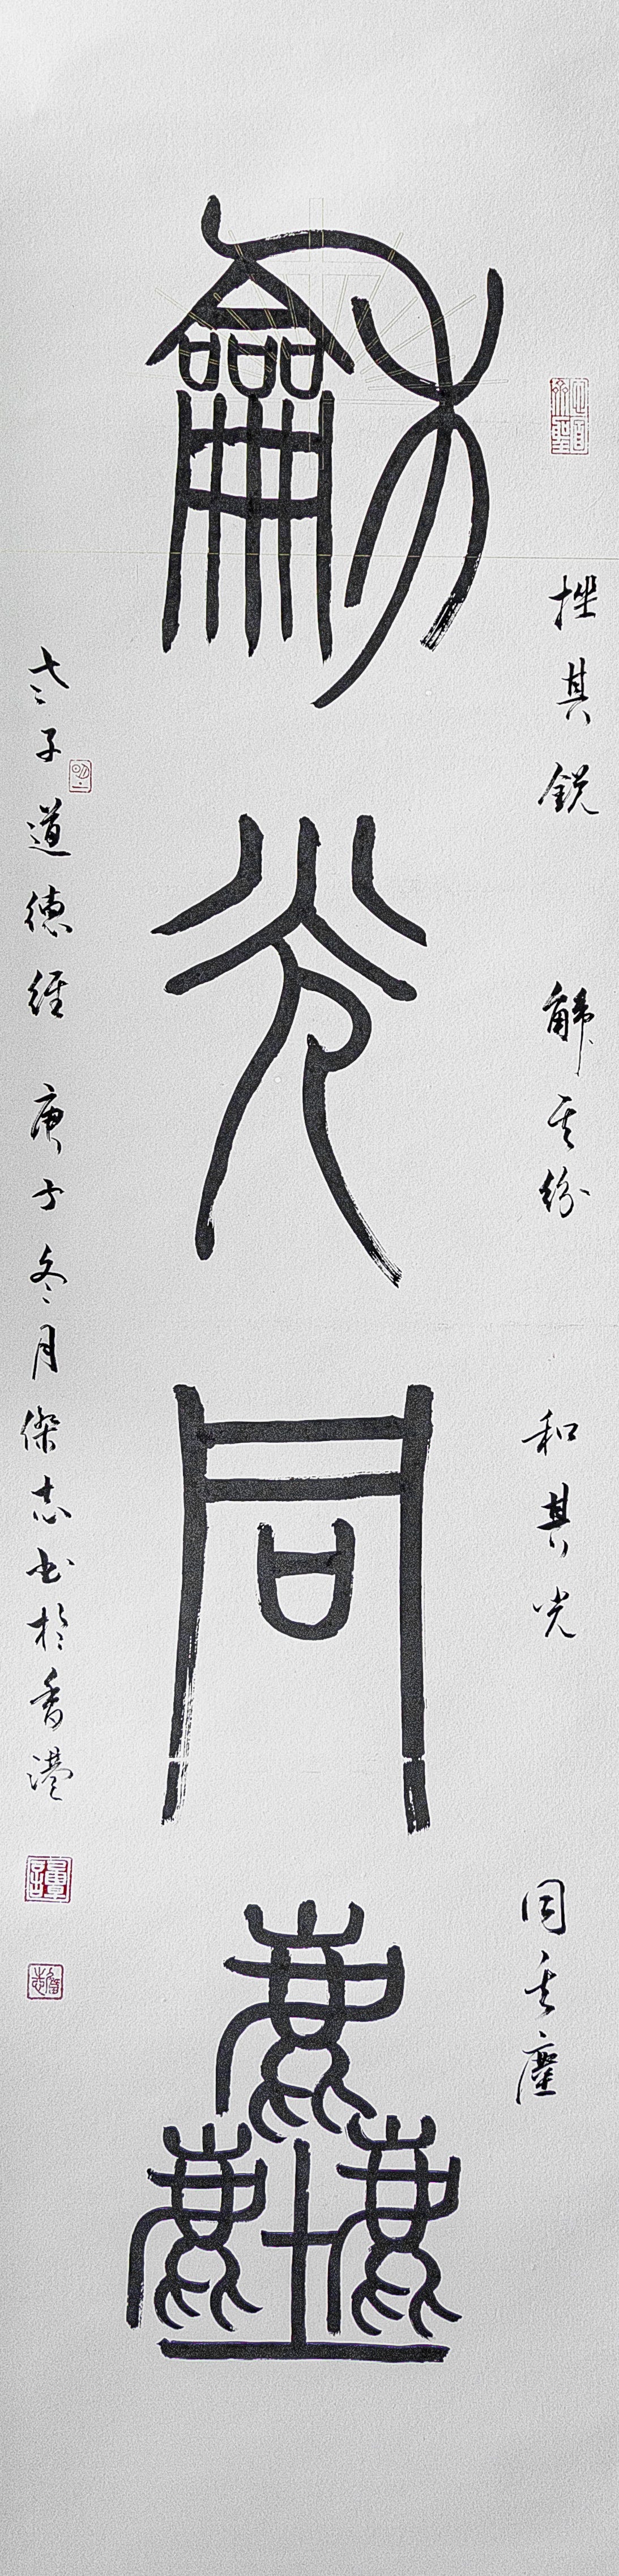 挫其銳 解其紛 和其光 同其塵
龢光同塵
老子道德經 庚子冬月傑志書於香港